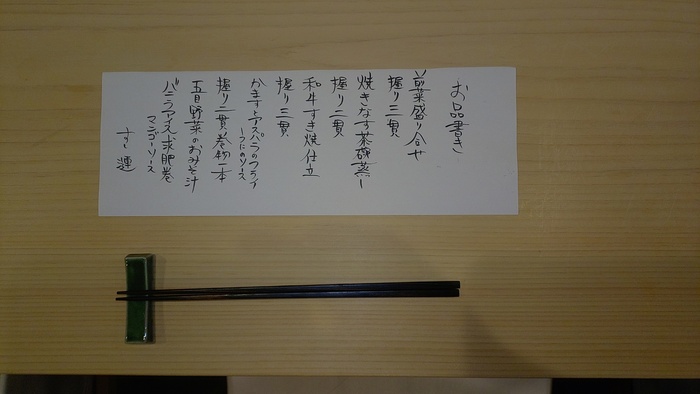 お品書き
前菜盛り合せ
握り三貫
焼きなす茶碗蒸し
握り二貫
和牛すき焼仕立
握り三貫
かますとアスパラのフライ
うにのソース
握り二貫巻物一本
五目野菜のおみそ汁
バニラアイス求肥巻
マンゴーソース
すし蓮